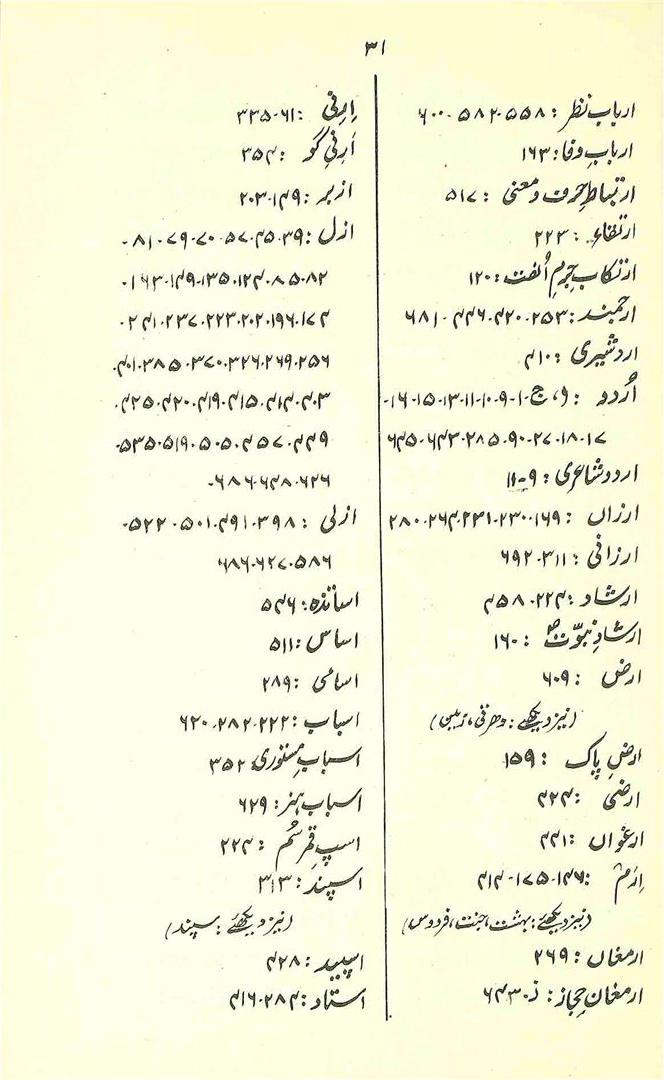 ۳۱
ارباب نظر : ۵۵۸۔۵۸۲۔۶۰۰
اربابِ وفا : ۱۶۳
ارتباطِ حرف و معنی : ۵۱۷
ارتقاء : ۲۲۳
ارتکابِ جرمِ اُلفت : ۱۲۰
ارجمند : ۲۵۳۔۴۲۰۔۴۴۶۔۶۸۱
اردشیری : ۴۱۰
اُردو : ۹، ج۔۱۔۹۔۱۰۔۱۱۔۱۳۔۱۵۔۱۶۔
۱۷۔۱۸۔۲۷۔۹۰۔۲۸۵۔۶۴۳۔۶۴۵
اردو شاعری : ۹۔۱۱
ارزاں : ۱۶۹۔۲۳۰۔۲۳۱۔۲۶۴۔۲۸۰
ارزانی : ۳۱۱۔۶۹۲
ارشاد : ۲۲۴۔۴۵۸
ارشادِ نبوّت : ۱۶۰
ارض : ۶۰۹
(نیز دیکھئے : دھرتی، زمین)
ارضِ پاک : ۱۵۹
ارضی : ۴۲۴
ارغواں : ۴۴۱
اِرَم : ۱۴۶۔۱۷۵۔۴۱۴
(نیز دیکھئے : بہشت، جنت، فردوس)
ارمغاں : ۲۶۹
ارمغانِ حجاز : ز۔۶۴۳۰
اَرِنی : ۶۱۔۳۳۵
اَرنی گو : ۳۵۴
ازبر : ۱۴۹۔۲۰۳
ازل : ۳۹۔۴۵۔۵۷۔۷۰۔۷۹۔۸۱۔
۸۲۔۸۵۔۱۲۴۔۱۳۵۔۱۴۹۔۱۶۳۔
۱۷۴۔۱۹۶۔۲۰۲۔۲۲۳۔۲۳۷۔۲۴۱۔
۲۵۶۔۲۶۹۔۳۲۶۔۳۷۰۔۳۸۵۔۴۰۱۔
۴۰۳۔۴۱۴۔۴۱۵۔۴۱۹۔۴۲۰۔۴۲۵۔
۴۴۹۔۴۵۷۔۵۰۵۔۵۱۹۔۵۳۵۔
۶۲۶۔۶۴۸۔۶۸۶۔
ازلی : ۳۹۸۔۴۹۱۔۵۰۱۔۵۲۲۔
۵۸۶۔۶۲۷۔۶۸۶
اساتذہ : ۵۴۶
اساس : ۵۱۱
اسامی : ۲۸۹
اسباب : ۲۲۲۔۲۸۲۔۶۲۰
اسبابِ مستوری : ۳۵۲
اسبابِ ہنر : ۶۲۹
اسپِ قمر سُم : ۲۲۴
اسپند : ۳۱۳
(نیز دیکھئے : سپند)
اسپید : ۴۲۸
استاد : ۲۸۴۔۴۱۶